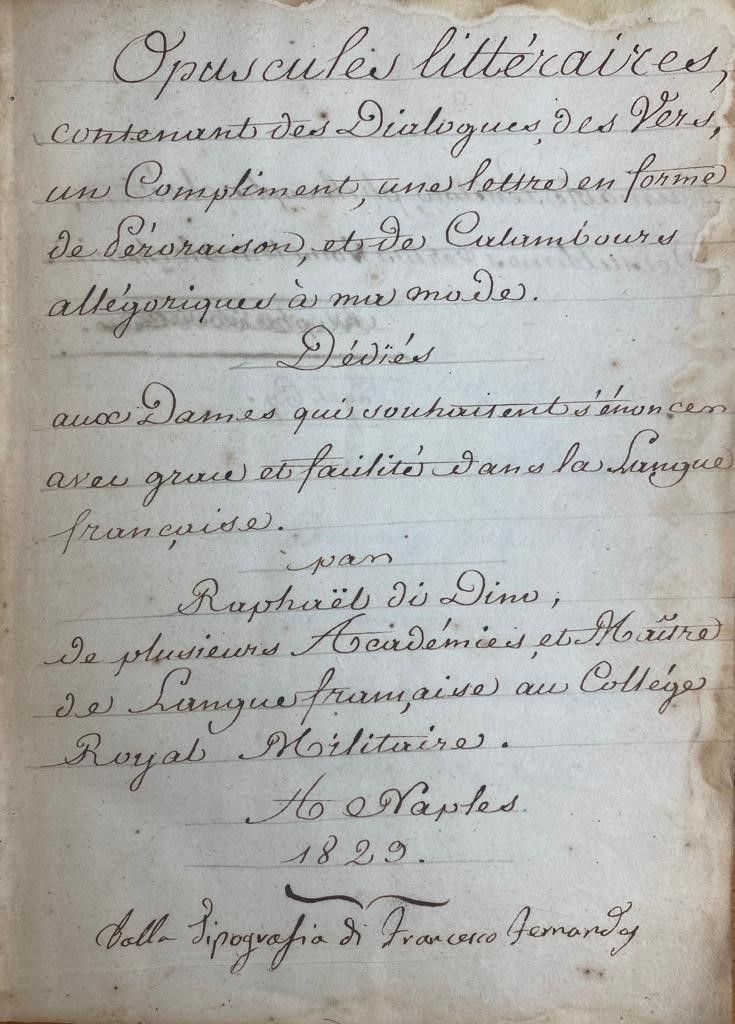 Opuscules littéraires,
contenant des Dialogues, des Vers,
un Compliment, une lettre en forme
de Péroraison, et de Calambours
allégoriques à ma mode.
Dédiés
aux Dames qui souhaitent s'énoncer
avec grace et facilité dans la Langue
française.
par
Raphaël di Dino,
de plusieurs Académies, et Maître
de Langue française au Collége
Royal Militaire.
A Naples
1829.
Dalla Tipografia di Francesco Fernandes